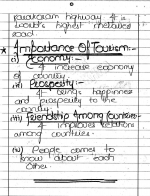 Karakoram highway. It is
world's highest metalled
road.
* Importance Of Tourism:-
Economy:-
It increase economy
of country.
(ii) Prosperity:-
It brings happiness
and prosperity to the
country.
(iii) Friendship Among Countries:-
It improves relations
among countries.
(iv) People comes to
know about each
other.